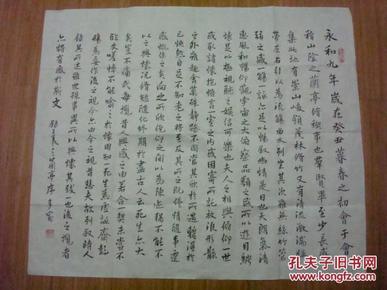 永和九年歲在癸丑暮春之初會于會
稽山陰之蘭亭修禊事也群賢畢至少長咸
集此地有崇山峻領茂林修竹又有清流激湍映
帶左右引以為流觴曲水列坐其次雖無絲竹管
弦之盛一觴一詠亦足以暢敘幽情是日也天朗氣清
惠風和暢仰觀宇宙之大俯察品類之盛所以遊目騁
懷足以極視聽之娛信可樂也夫人之相與俯仰一世
或取諸懷抱悟言一室之內或因寄所託放浪形骸
之外雖趣舍萬殊靜躁不同當其欣於所遇暫得於
己快然自足不知老之將至及其所之既倦情隨事遷
感慨係之矣向之所欣俛仰之間以為陳迹猶不能不
以之興懷況脩短隨化終期於盡古人云死生亦大
矣豈不痛哉每攬昔人興感之由若合一契未嘗不
臨文嗟悼不能喻之於懷固知一死生為虛誕齊彭
殤為妄作後之視今亦由今之視昔悲夫故列敘時人
錄其所述雖世殊事異所以興懷其致一也後之攬者
亦將有感於斯文 王羲之蘭亭序
孔夫子旧书网
KONGFZ.COM